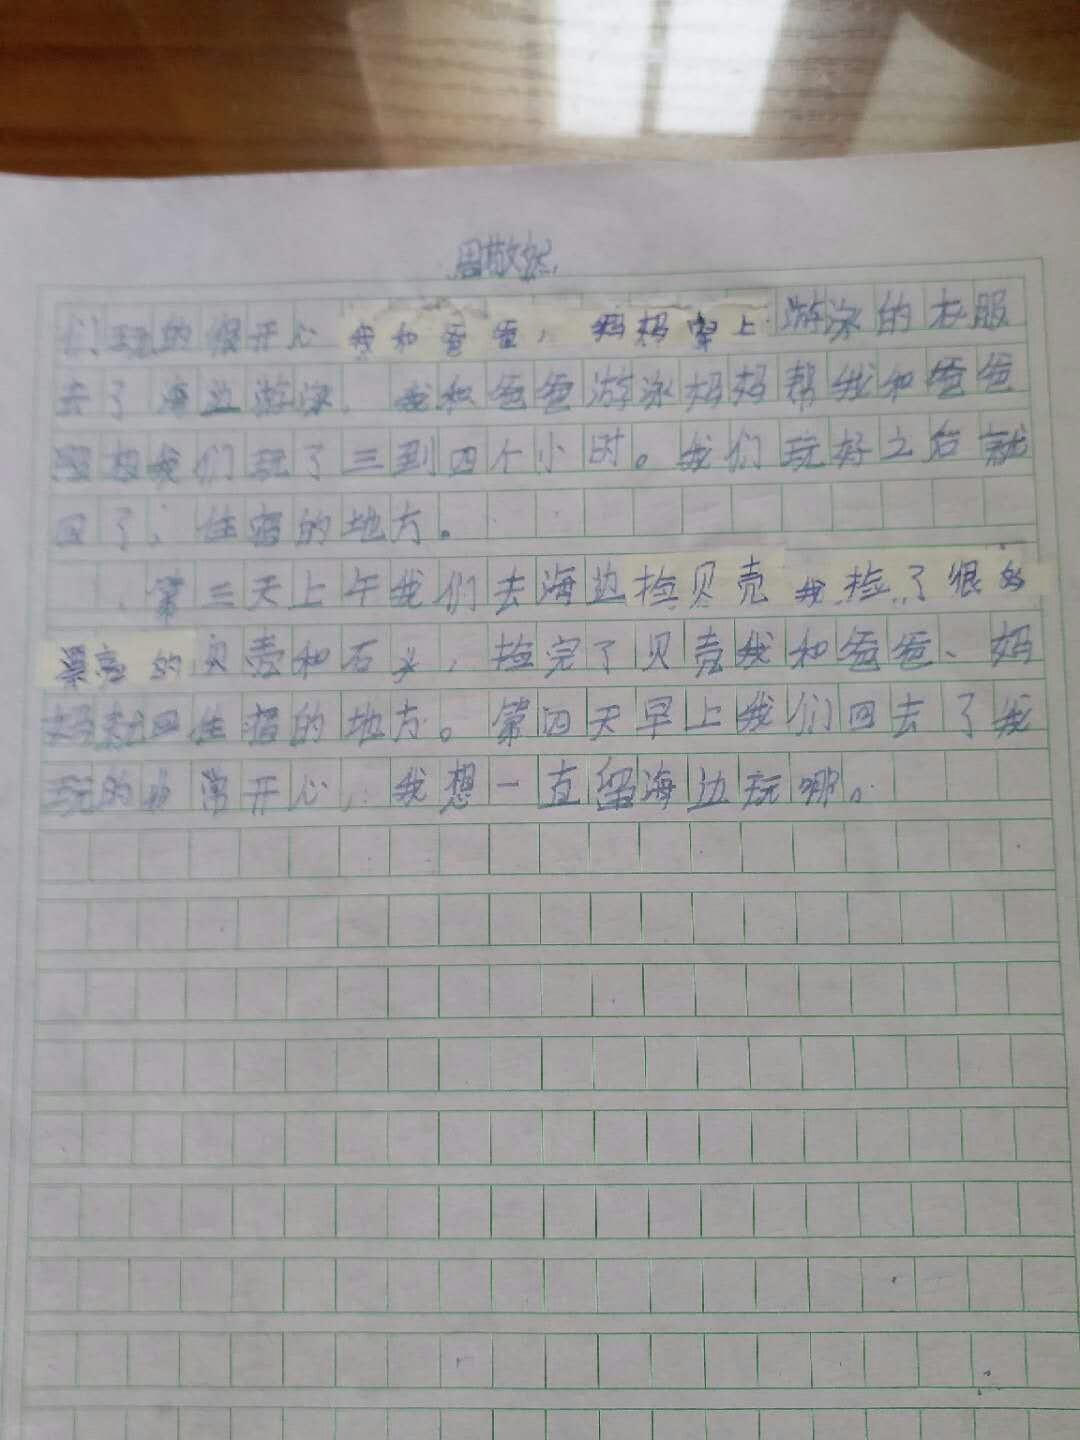 们玩的很开心我和爸爸,妈妈穿上游泳的衣服
去了海边游泳,我和爸爸游泳妈妈帮我和爸爸
照相我们玩了三到四个小时。我们玩好之后就
回了,住宿的地方。
第三天上午我们去海边捡贝壳我捡了很多
漂亮的贝壳和石头,捡完了贝壳我和爸爸、妈
妈就回住宿的地方。第四天早上我们回去了我
玩的非常开心,我想一直留海边玩哪。